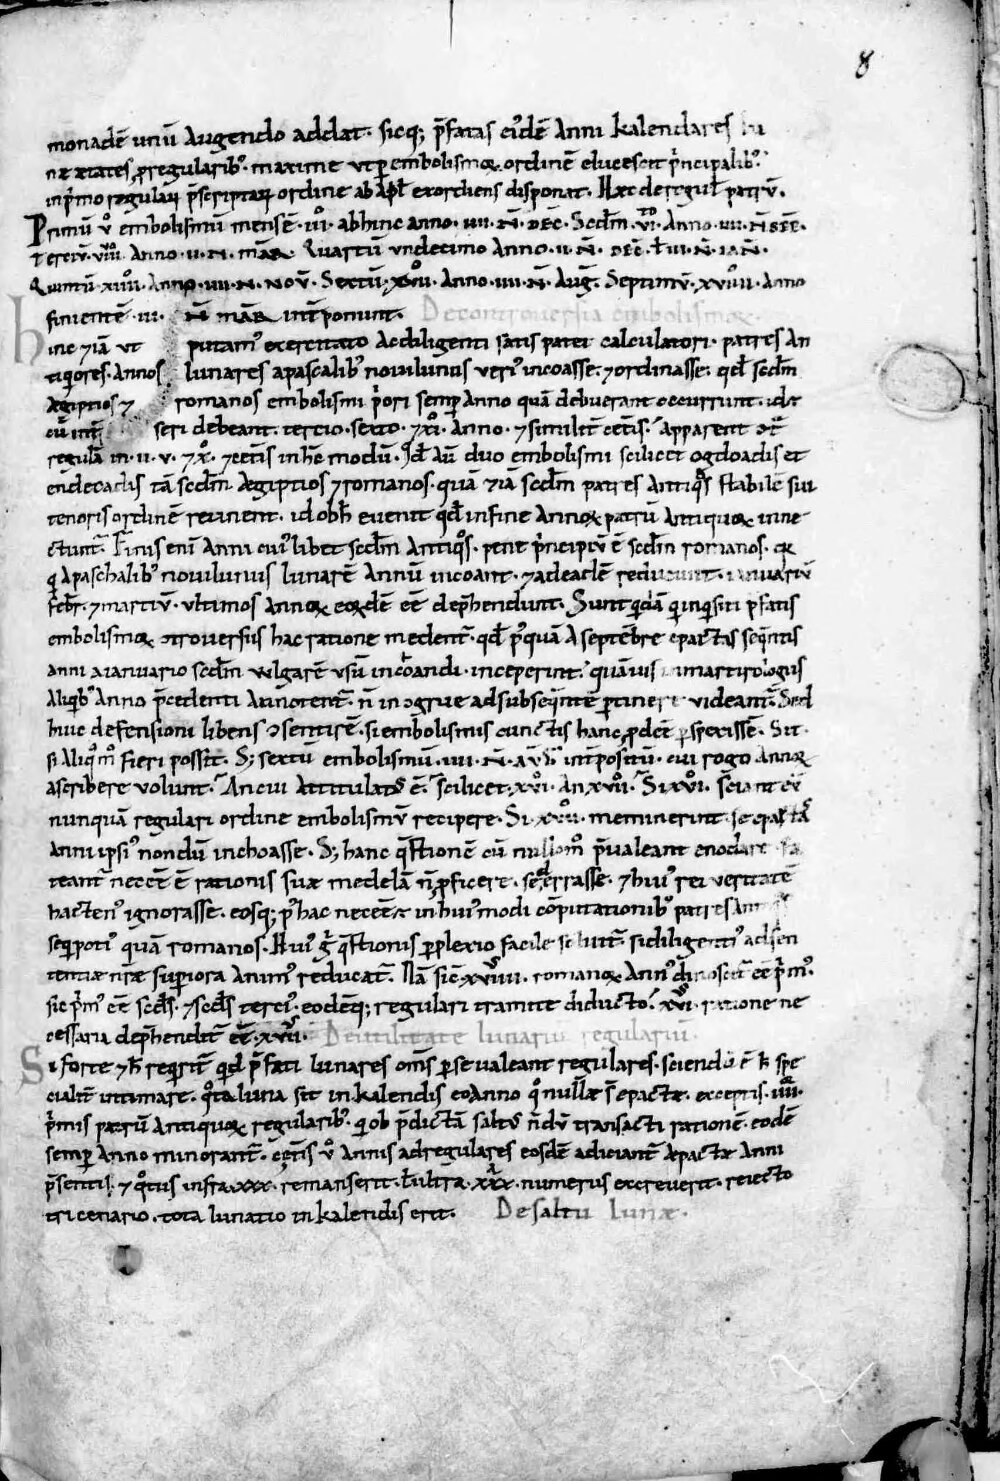 8
monadē unū augendo addat. sicq; p̄fatas eiꝰdē anni kalendares lu
næ ætates, p regularibꝰ. maxime ut p embolismoꝝ ordinē elucescit p̄ncipalibꝰ.
in p̄mo regulaꝝ p̄scriptaꝝ ordine ab apl̄ exordiens disponat. Hæc de regul̄ patrū.
Primū v̊ embolismū mensē .iii. abhinc anno .iiii. N̄. DEC̄. Sc̄dm̄ .vi. Anno .iiii. N̄ SEP̄.
Terciū .viii. Anno .ii. N. MAR. Quartū undecimo Anno .ii. N̄. DEC̄. ł .iii. N̄. IAN̄.
Quintū xiiii. Anno .iiii. N. NOV̄. Sextū . Anno .iiii. N̄. AUḠ. Septimū. xviiii. Anno
finientē .iii. N̄ MAR int̄ponunt. De controversia embolismoꝝ.
Hinc ⁊iā ut putamꝰ exercitato ac diligenti satis patet calculatori. patres an
tiq̇ores. annos lunares a pascalibꝰ noviluniis veriꝰ incoasse. ⁊ ordinasse: qd̄ sc̄dm̄
ægiptios ⁊ romanos embolismi p̄ori semp anno quā debuerant occurrunt. id ē
cū int̄ seri debeant. tercio. sexto. ⁊ xi. anno. ⁊ similit̄ cet̄is. apparent
regulā iii. ii. v. ⁊ x. ⁊ cet̄is in hc̄ modū. Id̄ aū duo embolismi scilicet ogdoadis et
endecadis tā sc̄dm̄ ægiptios ⁊ romanos. quā ⁊iā sc̄dm̄ patres antiq̊s stabilē sui
tenoris ordinē retinent. id ob hc̄ evenit qd̄ in fine annoꝝ patrū antiquoꝝ inne
ctunt̄. Finis eni anni cuiꝰlibet sc̄dm̄ antiq̊s. pene p̄ncipiū ē sc̄dm̄ romanos.
q̇ a paschalibꝰ noviluniis lunarē annū incoant. ⁊ ad eadē reducunt. ianuariū
febr̄. ⁊ martiū. ultimos annoꝝ eoꝝdē eē dep̄hendunt. Sunt q̇dā q̇ inq̇siti p̄fatis
embolismoꝝ ɔtroversiis hac ratione medent̄. qd̄ pꝰquā a septēbre epactas seq̄ntis
anni a ianuario sc̄dm̄ vulgarē usū incoandi. inceperint. quāvis in martirologiis
aliq̇bꝰ anno p̄cedenti annotent̄. n̄ inɔgrue ad subseq̄ntē ptinere videant̄. Sed
huic defensioni libens ɔsentirē. si embolismis cunctis hanc pdēē pspexissē. Sit.
si aliq̊m̊ fieri possit. S; sextū embolismū .iiii. N̄. AUḠ int̄positū. cui rogo annoꝝ
ascribere volunt. An cui attitulatꝰ ē. scilicet. xvi. an xvii. Si xvi. sciant eū
nunquā regulari ordine embolismū recipere. Si. xvii. meminerint. se epactā
anni ipsiꝰ nondū inchoasse. S; hanc q̄stionē cū nullom̊ p̄valeant enodare. fa
teant̄ neceē ē rationis suæ medelā n̄ pficere. seq; errasse. ⁊ huiꝰ rei veritatē
hactenꝰ ignorasse. eosq; pꝰ hac neceē ē in huiꝰmodi cōputationibꝰ patres antiq̊s
seq̇ potiꝰ quā romanos. Huiꝰ g̊ q̄stionis pplexio facile solvit̄. si diligentiꝰ ad sen
tentiæ nr̄æ supiora animꝰ reducat̄. Nā sic xviiii. romanoꝝ annꝰ dinoscit̄ eē p̄mꝰ.
sic p̄mꝰ eē sc̄ds̄. ⁊ sc̄ds̄ terciꝰ. eodēq; regulari tramite diducto. xvi. ratione ne
cessaria dep̄hendit̄ eē xvii. De utilitate lunariū regulariū.
Si forte ⁊ hc̄ req̇rit̄ q̇d p̄fati lunares om̄s p se valeant regulares. sciendū ē h̄ spe
cialit̄ intimare. q̊ta luna sit in kalendis eo anno q̊ nullæ s̄ epactæ. exceptis .iiii.
p̄mis patrū antiquoꝝ regularibꝰ. q̇ ob p̄dictā saltꝰ n̄dū transacti rationē. eodē
semp anno minorant̄. cet̄is v̊ annis ad regulares eosdē adiciant̄ epactæ anni
p̄sentis. ⁊ q̊tus infra .xxx. remanserit. ł ultra .xxx. numerus excreverit. reiecto
tricenario. tota lunatio in kalendis erit. De saltu lunæ.
I